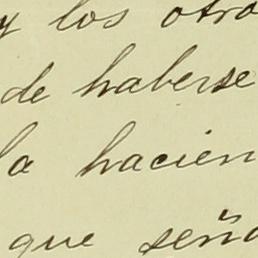 y los otro
de haberse
la hacien
que seña